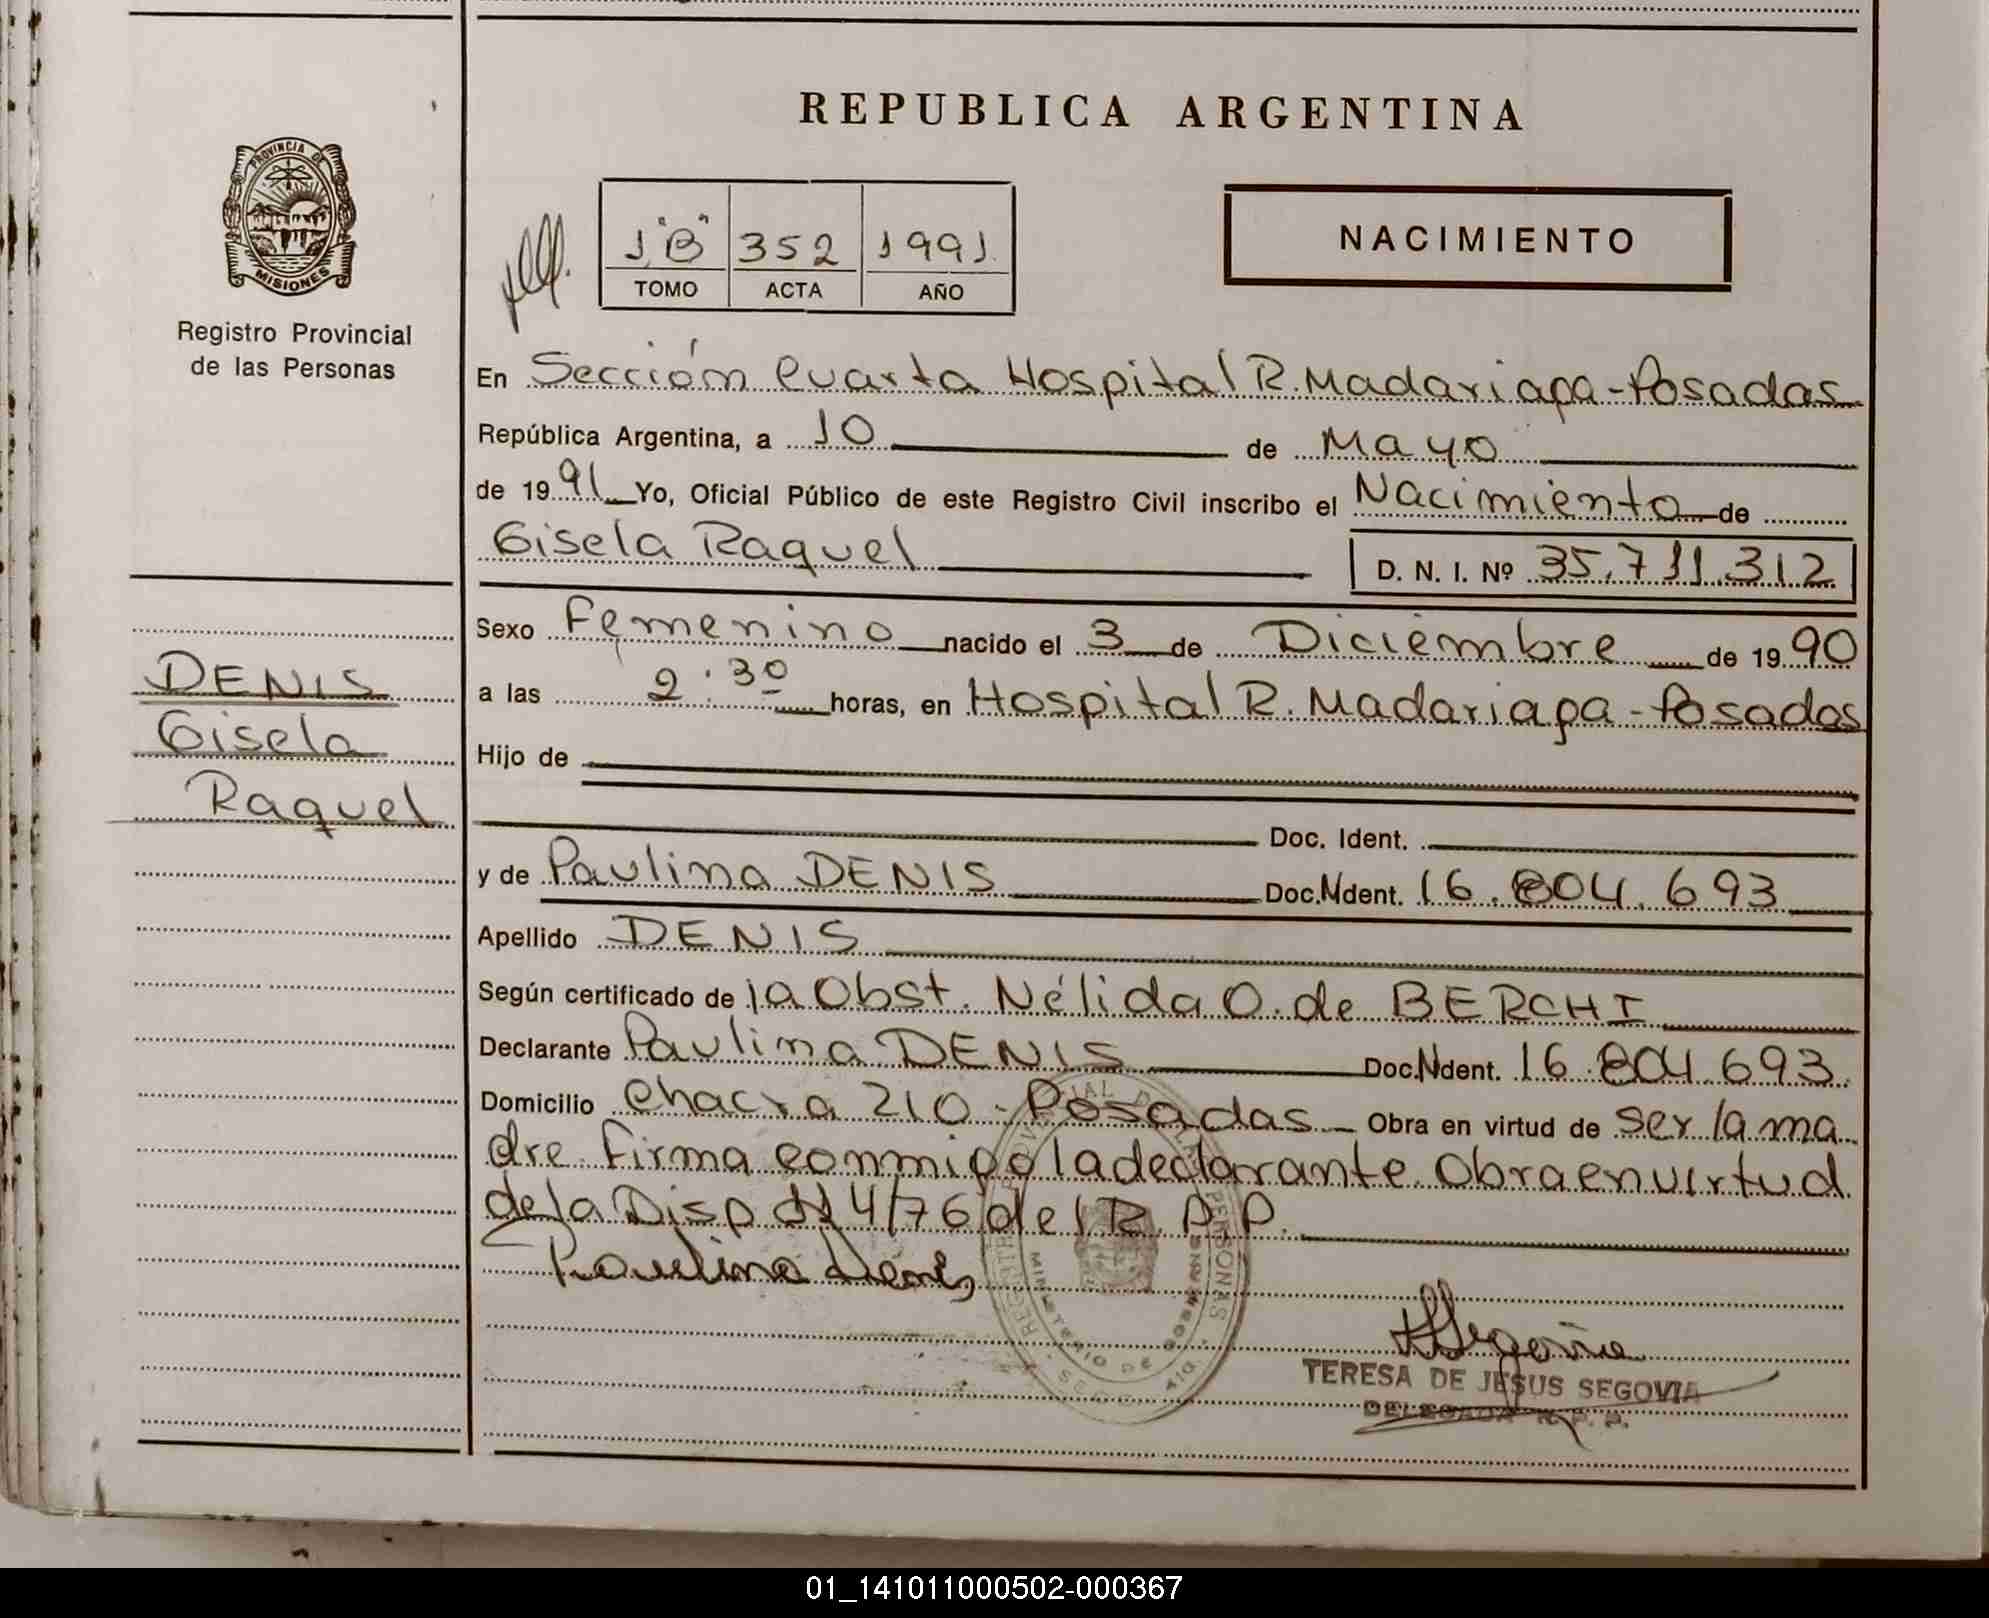 REPUBLICA ARGENTINA
PROVINCIA DE
MISIONES
Registro Provincial
de las Personas
1 "B" 352 1991
TOMO ACTA AÑO
NACIMIENTO
En Sección Cuarta Hospital R. Madariaga - Posadas
República Argentina, a 10 de Mayo
de 1991 Yo, Oficial Público de este Registro Civil inscribo el Nacimiento de
Gisela Raquel D. N. I. Nº 35.711.312
Sexo Femenino nacido el 3 de Diciembre de 1990
a las 2.30 horas, en Hospital R. Madariaga - Posadas
Hijo de
Doc. Ident.
y de Paulina DENIS Doc. Ident. 16.804.693
Apellido DENIS
Según certificado de la Obst. Nélida O. de BERCHI
Declarante Paulina DENIS Doc. Ident. 16.804.693
Domicilio Chacra 210 - Posadas Obra en virtud de ser la ma
dre. Firma conmigo la declarante. Obra en virtud
de la Disp N 4/76 del R. P. P.
Paulina Denis
DENIS
Gisela
Raquel
PERSONAS
MINISTERIO DE GOBIERNO
Segovia
TERESA DE JESUS SEGOVIA
DELEGADA R. P. P.
01_141011000502-000367